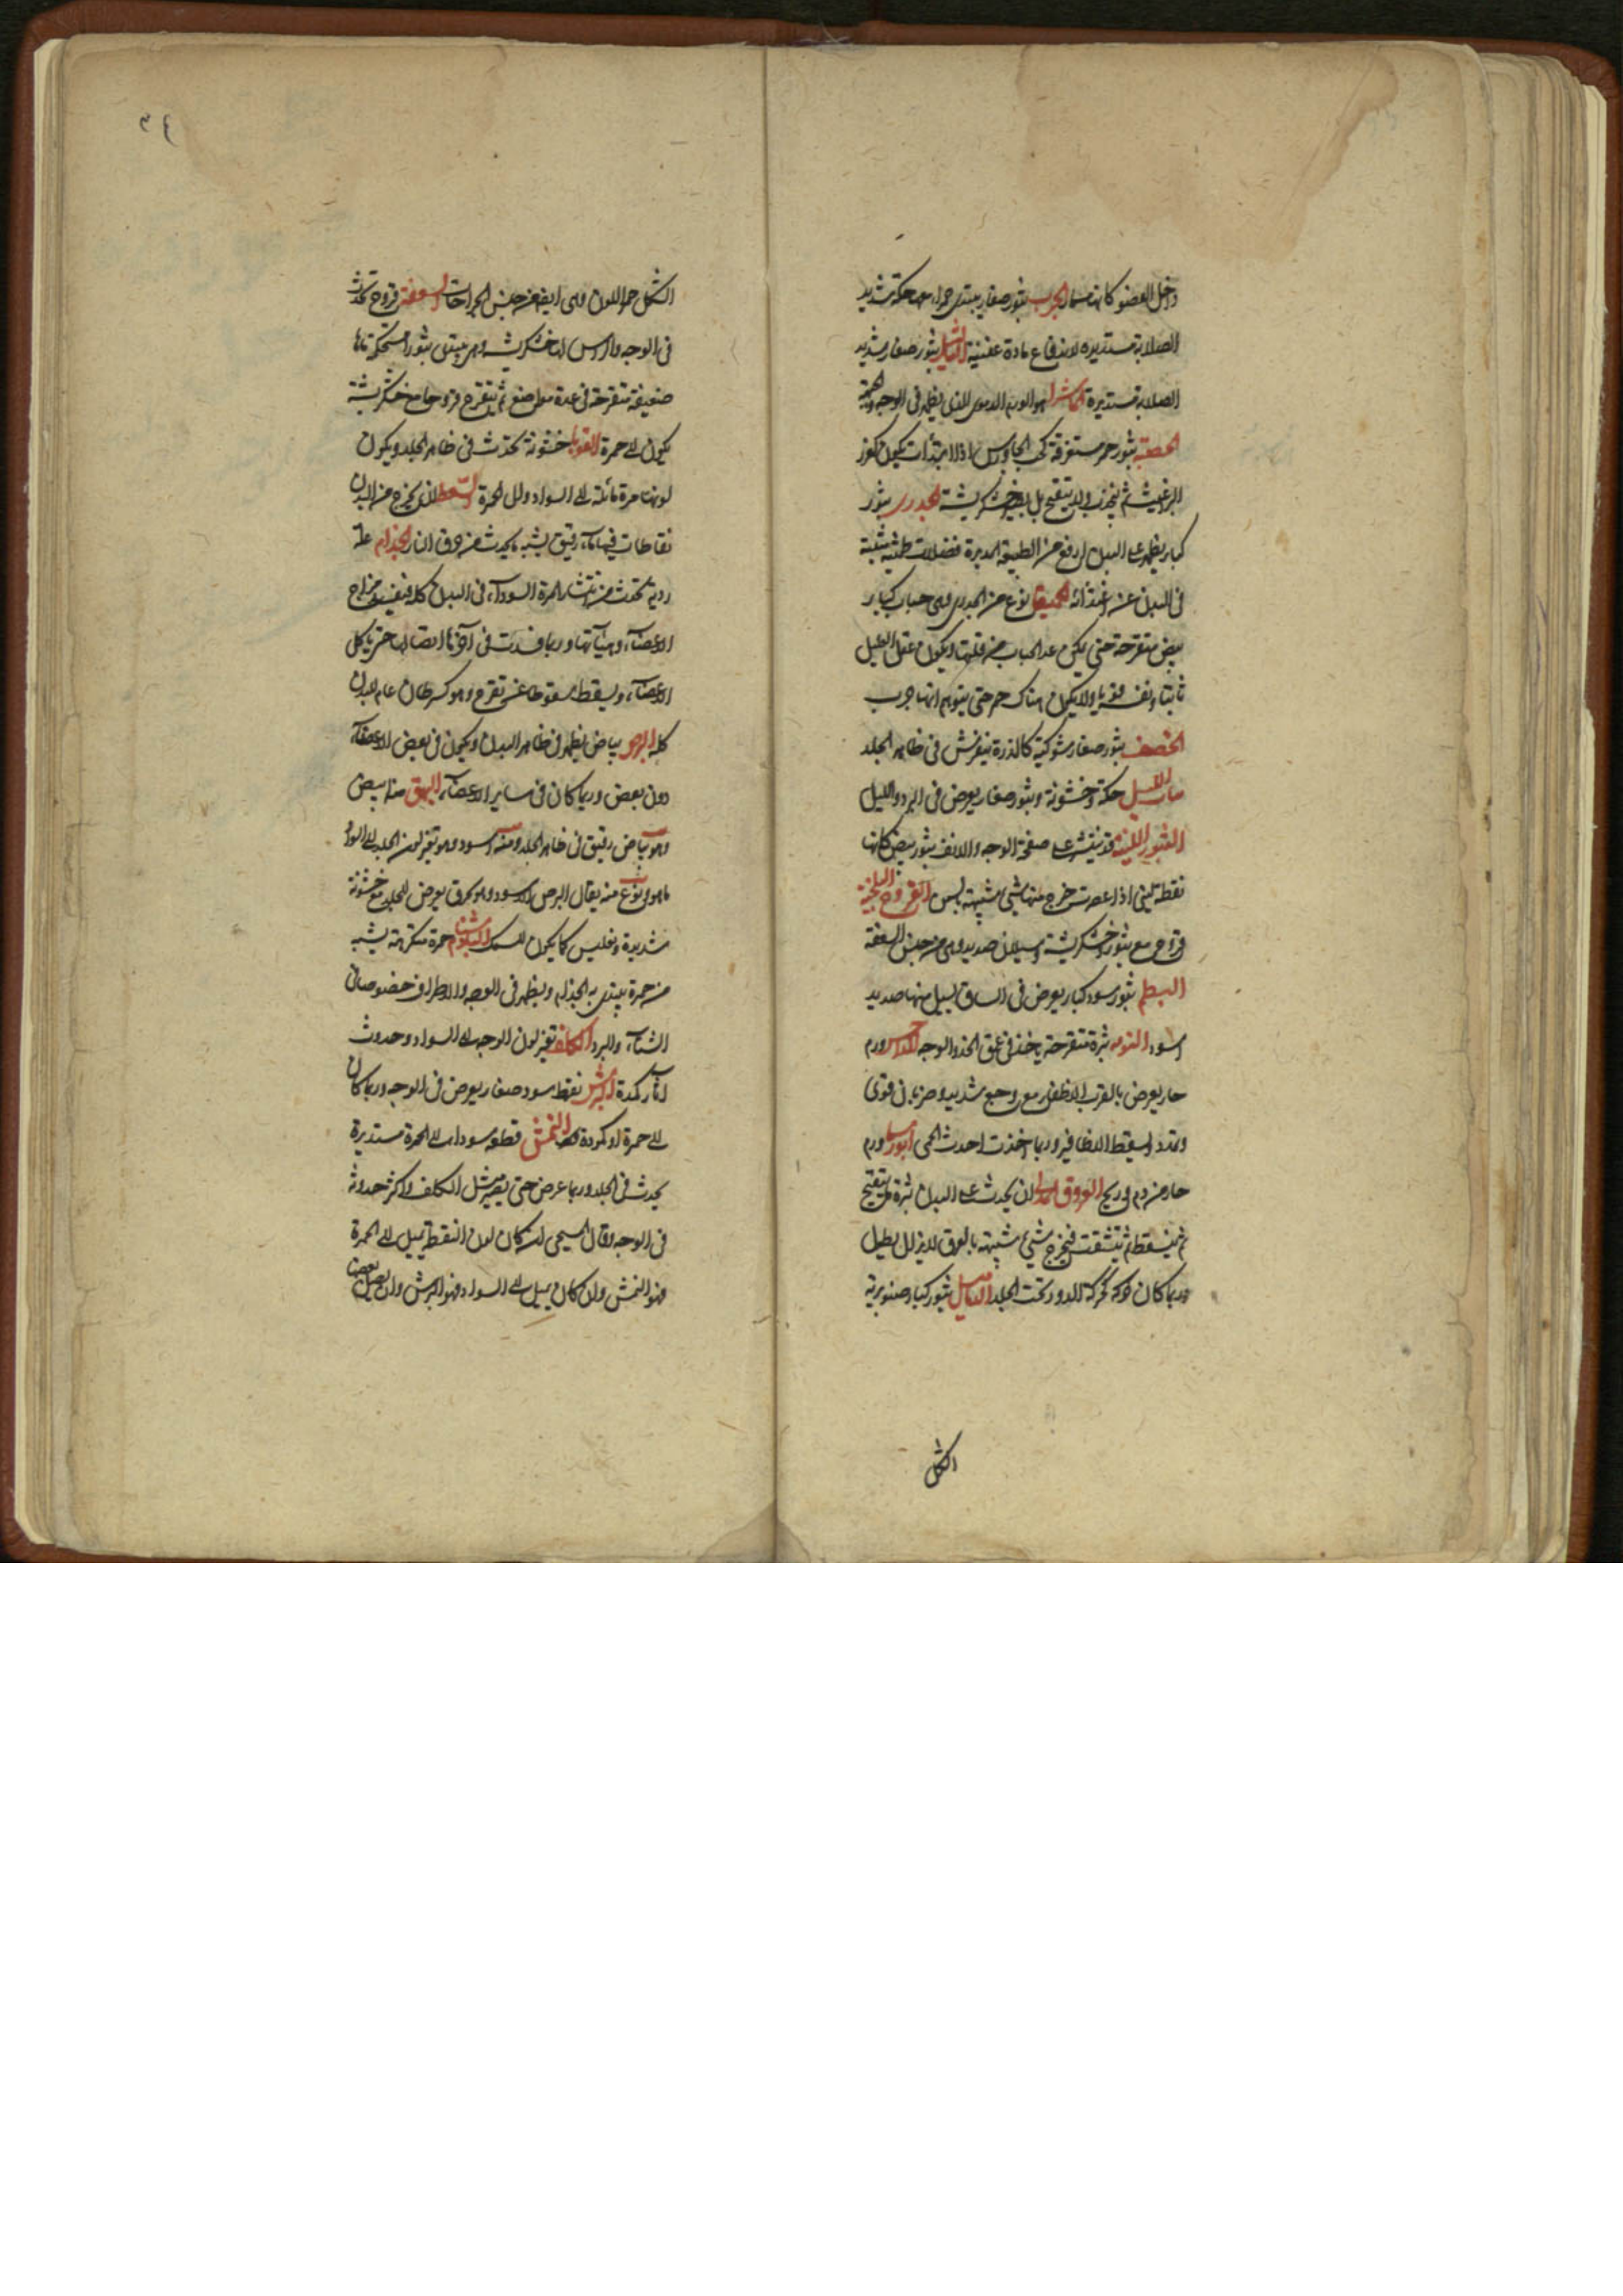 داخل العضو كانها مسمار الجرب بثور صغار يبتدى حمرا معها حكة شديد
الصلابة مستديرة لاندفاع مادة عفنية الثآليل بثور صغار شديد
الصلابة مستديرة الماشرا هو الورم الدموى الذى يظهر فى الوجه والجبهة
الحصبة بثور حمر متفرقة كحب الجاورس اذا ابتدات يكون كقرز
البراغيث ثم ولا يتقيح بل يصير خشكريشة الجدرى بثور
كبار يظهر على البدن لدفع من الطبيعة المدبرة فضلات طمثية
فى البدن عند اغتذائه الحميقا نوع من الجدرى وهى حباب كبار
بيض متفرقة حتى يمكن عد الحباب من قلتها ويكون عقل العليل
ثابتا ونفسه قويا ولا يكون هناك حمر حتى يتوهم انها جرب
الحصف بثور صغار شوكية كالذرة ينفرش فى ظاهر الجلد
بنات الليل حكة وخشونة وبثور صغار يعرض فى البرد والليل
البثور اللبنية قد ينفشر على صفحة الوجه والانف بثور بيض كانها
نقطة لبنى اذا عصرت خرج منها شئ شبيه بلبن القروح البلخية
قروح مع بثور وخشكريشة وسيلان صديد وهى من جنس السعفة
البطم بثور سود كبار يعرض فى الساق يسيل منها صديد
اسود التوثه بثرة متقرحة ياخذ فى عمق الخد والوجه الداحس ورم
حار يعرض بالقرب الاظفار مع وجع شديد وضربان قوى
وتمدد ويسقط الاظافير وربما اخذت احدث الحمى ابورسما ورم
حار من دم وريح العروق المدنى ان يحدث على البدن بثرة يتقيح
ثم يتنفط ثم يتشقت فيخرج شئ شبيه بالعرق لا يزال يطيل
وربما كان حركة كحركة الدود تحت الجلد الدماميل بثور كبار صنوبرية
الشكل
الشكل حمر اللون وهى ايضا من جنس الجراحات السعفة قروح تحدث
فى الوجه والراس لها خشكريشه وهى يبتدى بثورا مستحكة
ضعيفة متفرقة فى عدة مواضع ثم يتقرح قروحا مع خشكريشة
يكون الى حمرة القوبا خشونة تحدث فى ظاهر الجلد ويكون
لونها مرة مائلة الى السواد ومرة الى الحمرة الذى يخرج من البدن
نفاطات فيها ماء رقيق يشبه ما يحدث من حرق النار الجذام علة
ردية تحدث من انتشار المرة السوداء فى البدن كله فيفسد مزاج
الاعضاء وهياتها وربما فسدت فى آخرها اتصالها حتى ياكل
الاعضاء ويسقط سقوطا عن تقرح وهو كسرطان عام للبدن
كله البرص بياض يظهر فى ظاهر البدن ويكون فى بعض الاعضاء
دون بعض وربما كان فى ساير الاعضاء البهق منه ابيض
وهو بياض رقيق فى ظاهر الجلد ومنه اسود وهو تغير لون الجلد الى السواد
ما هو ونوع منه يقال البرص الاسود وهو كحرق يعرض للجلد مع خشونة
شديدة وتفليس كما يكون للسمك البادشنام حمرة منكرة يشبه
من حمرة يبتدى به الجذام ويظهر فى الوجه والاطراف خصوصا فى
الشتاء والبرد الكلف تغير لون الوجه الى السواد وحدوث
آثار كمدة البرش نقط سود صغار يعرض فى الوجه وربما كان
الى حمرة او كمودة النمش قطعه سودا الى الحمرة مستديرة
يحدث فى الجلد وربما عرض حتى يصير مثل الكلف واكثر حدوثه
فى الوجه وقال المسيحى ان كان لون النقط تميل الى الحمرة
فهو النمش وان كان يميل الى السواد فهو البرش وان اتصل بعضها